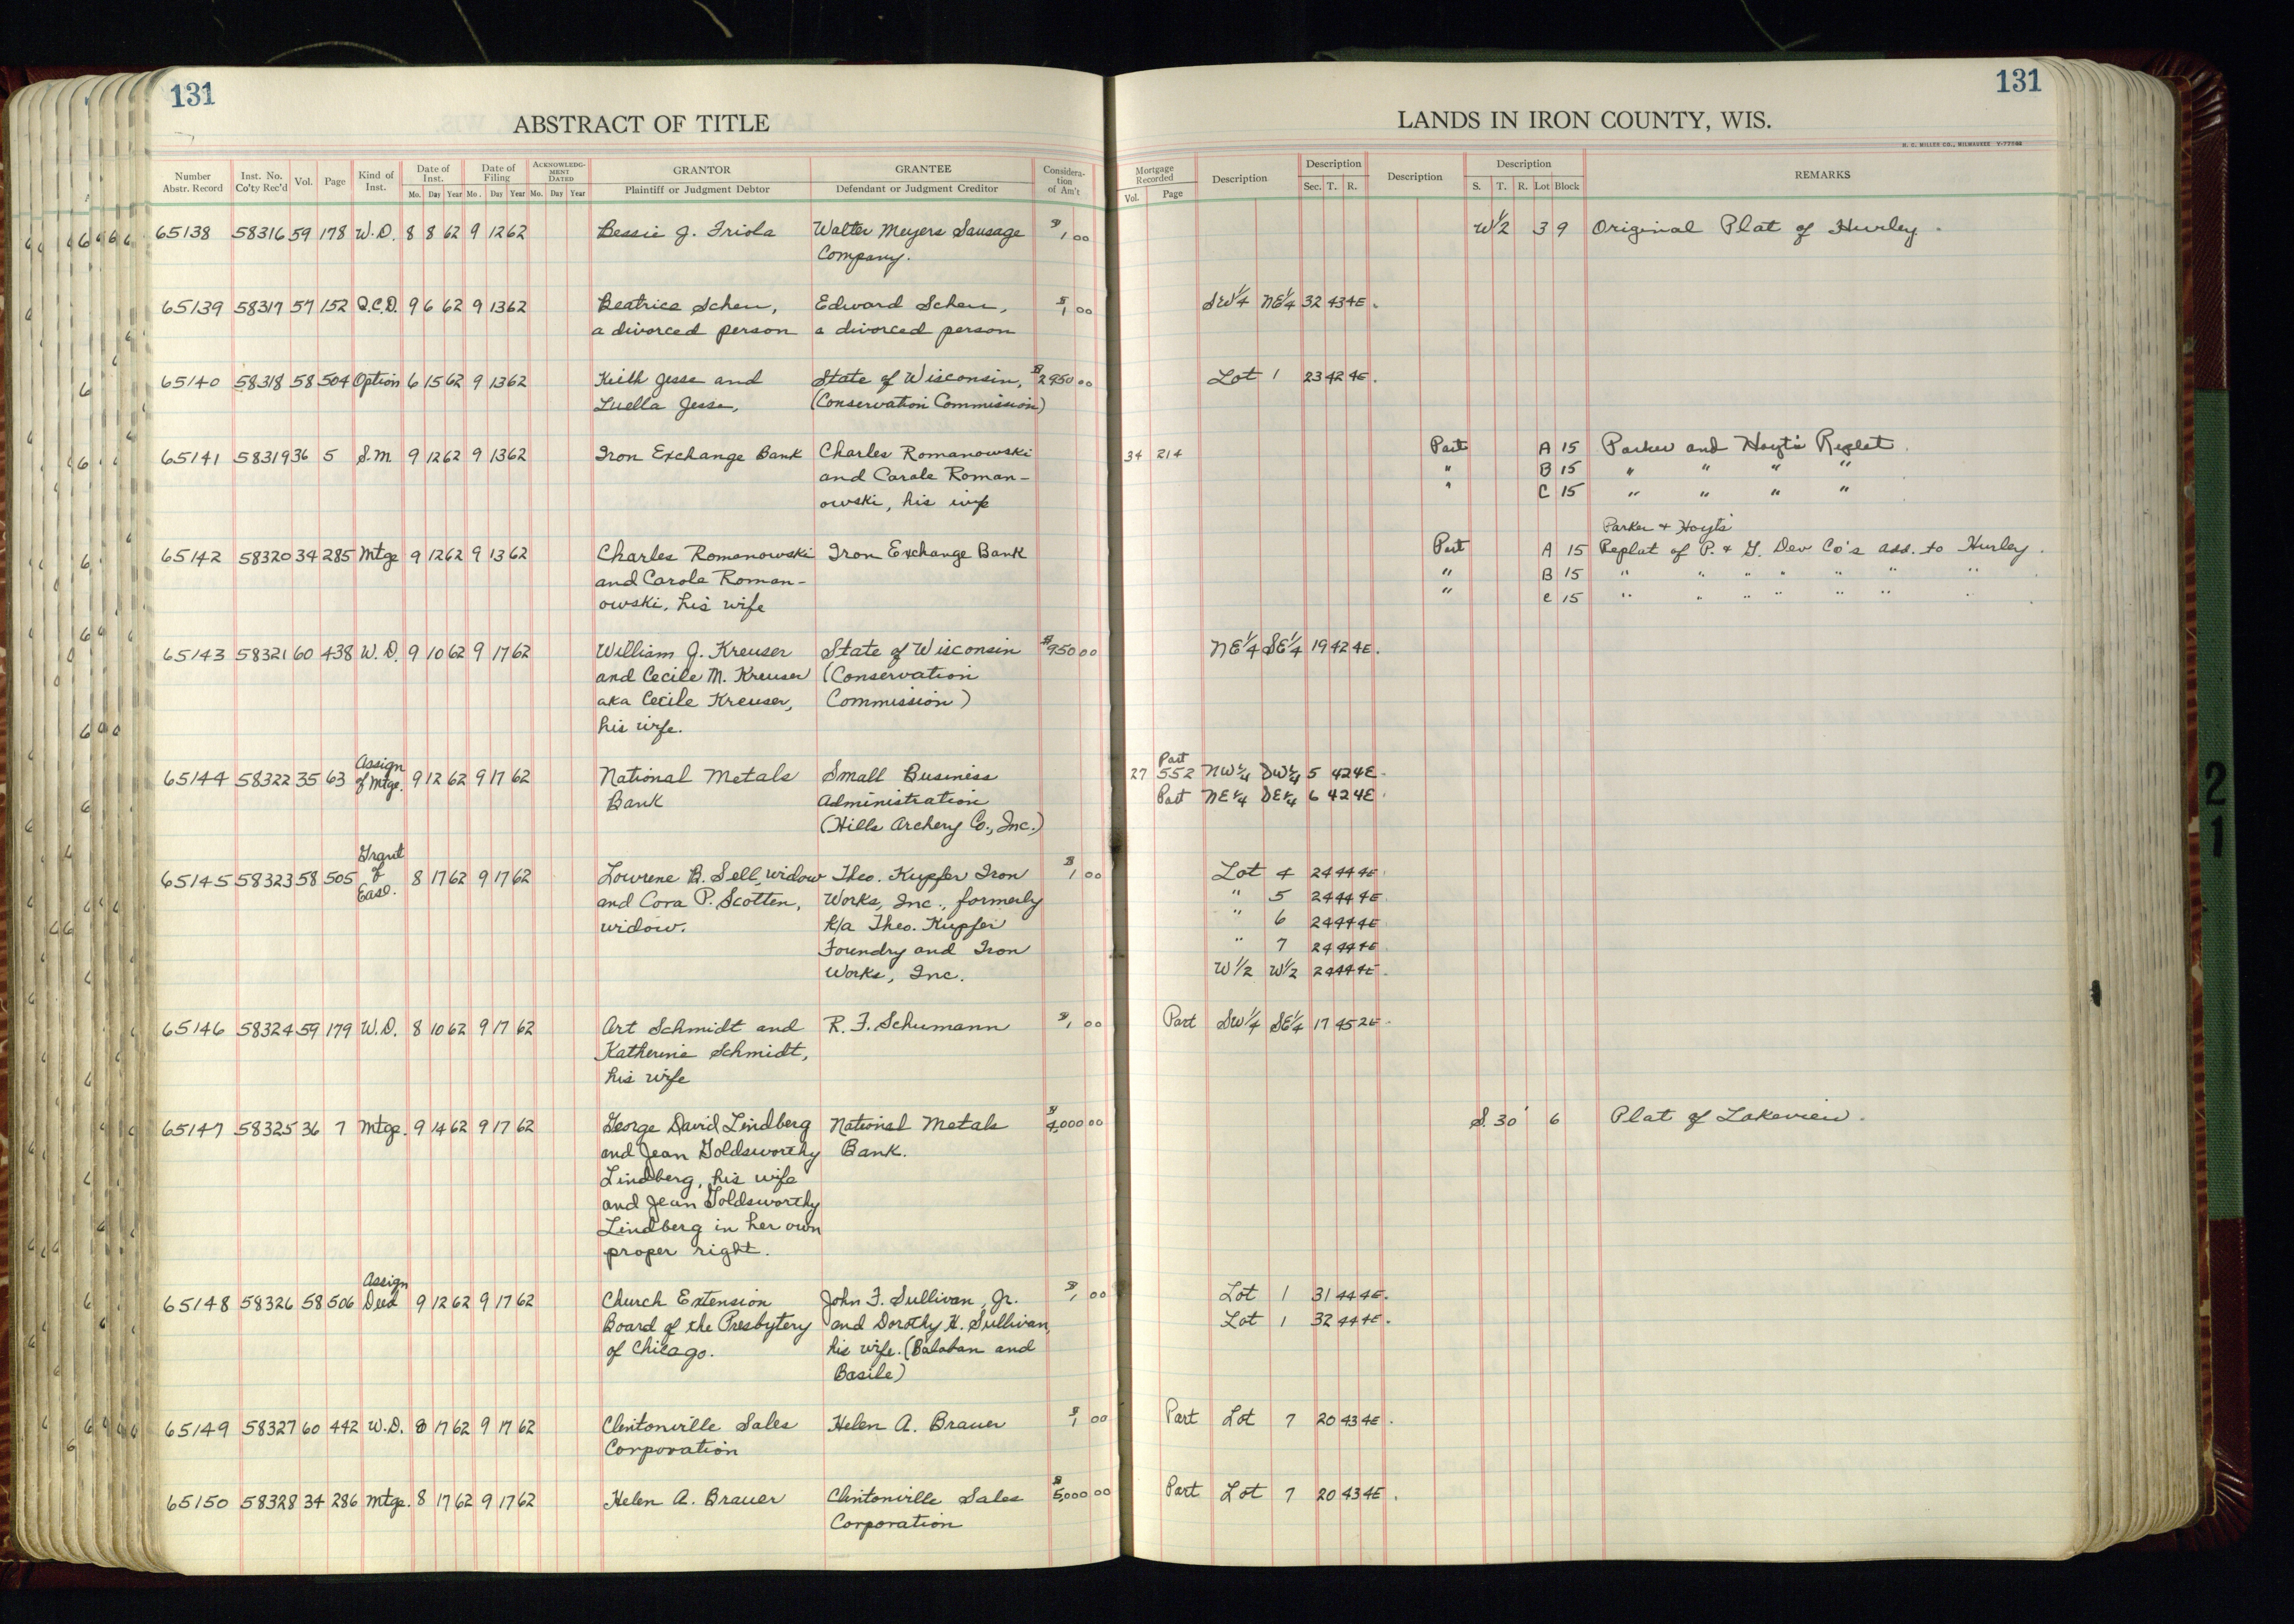 131
ABSTRACT OF TITLE
Number Abstr. Record Inst. No. Co'ty Rec'd Vol. Page Kind of Inst. Date of Inst. Mo. Day Year Date of Filing Mo. Day Year ACKNOWLEDGMENT DATED Mo. Day Year GRANTOR Plaintiff or Judgment Debtor GRANTEE Defendant or Judgment Creditor Consideration of Am't
65138 58316 59 178 W.D. 8 8 62 9 12 62 Bessie J. Triola Walter Meyers Sausage $1 00
Company.
65139 58317 57 152 Q.C.D. 9 6 62 9 13 62 Beatrice Scheu, Edward Scheu, $1 00
a divorced person a divorced person
65140 58318 58 504 Option 6 15 62 9 13 62 Keith Jesse and State of Wisconsin, $2950 00
Luella Jesse, (Conservation Commission)
65141 58319 36 5 S.M 9 12 62 9 13 62 Iron Exchange Bank Charles Romanowski
and Carole Roman-
owski, his wife
65142 58320 34 285 Mtge 9 12 62 9 13 62 Charles Romanowski Iron Exchange Bank
and Carole Roman-
owski, his wife
65143 58321 60 438 W.D. 9 10 62 9 17 62 William J. Kreuser State of Wisconsin $950 00
and Cecile M. Kreuser (Conservation
aka Cecile Kreuser, Commission)
his wife.
65144 58322 35 63 Assign of Mtge. 9 12 62 9 17 62 National Metals Small Business
Bank Administration
(Hills Archery Co., Inc.)
65145 58323 58 505 Grant of Ease. 8 17 62 9 17 62 Lowrene B. Sell, widow Theo. Kupfer Iron $1 00
and Cora P. Scotten, Works, Inc., formerly
widow. k/a Theo. Kupfer
Foundry and Iron
Works, Inc.
65146 58324 59 179 W.D. 8 10 62 9 17 62 Art Schmidt and R. F. Schumann $1 00
Katherine Schmidt,
his wife
65147 58325 36 7 Mtge. 9 14 62 9 17 62 George David Lindberg National Metals $4,000 00
and Jean Goldsworthy Bank.
Lindberg, his wife
and Jean Goldsworthy
Lindberg in her own
proper right.
65148 58326 58 506 Assign Deed 9 12 62 9 17 62 Church Extension John F. Sullivan, Jr. $1 00
Board of the Presbytery and Dorothy H. Sullivan,
of Chicago. his wife. (Balaban and
Basile)
65149 58327 60 442 W.D. 8 17 62 9 17 62 Clintonville Sales Helen A. Brauer $1 00
Corporation
65150 58328 34 286 Mtge. 8 17 62 9 17 62 Helen A. Brauer Clintonville Sales $5,000 00
Corporation
131
LANDS IN IRON COUNTY, WIS.
H. C. MILLER CO., MILWAUKEE
Mortgage Recorded Vol. Page Description Description Sec. T. R. Description Description S. T. R. Lot Block REMARKS
W 1/2 3 9 Original Plat of Hurley.
SW 1/4 NE 1/4 32 43 4E.
Lot 1 23 42 4E.
34 214 Part A 15 Parker and Hoyt's Replat.
" B 15 " " " "
" C 15 " " " "
Parker & Hoyt's
Part A 15 Replat of P. & G. Dev Co's add. to Hurley.
" B 15 " " " " " " "
" C 15 " " " " " " "
NE 1/4 SE 1/4 19 42 4E.
27 552 Part NW 1/4 SW 1/4 5 42 4E.
Part NE 1/4 SE 1/4 6 42 4E.
Lot 4 24 44 4E.
" 5 24 44 4E.
" 6 24 44 4E
" 7 24 44 4E
W 1/2 W 1/2 24 44 4E.
Part SW 1/4 SE 1/4 17 45 2E.
S. 30' 6 Plat of Lakeview.
Lot 1 31 44 4E.
Lot 1 32 44 4E.
Part Lot 7 20 43 4E.
Part Lot 7 20 43 4E.
21